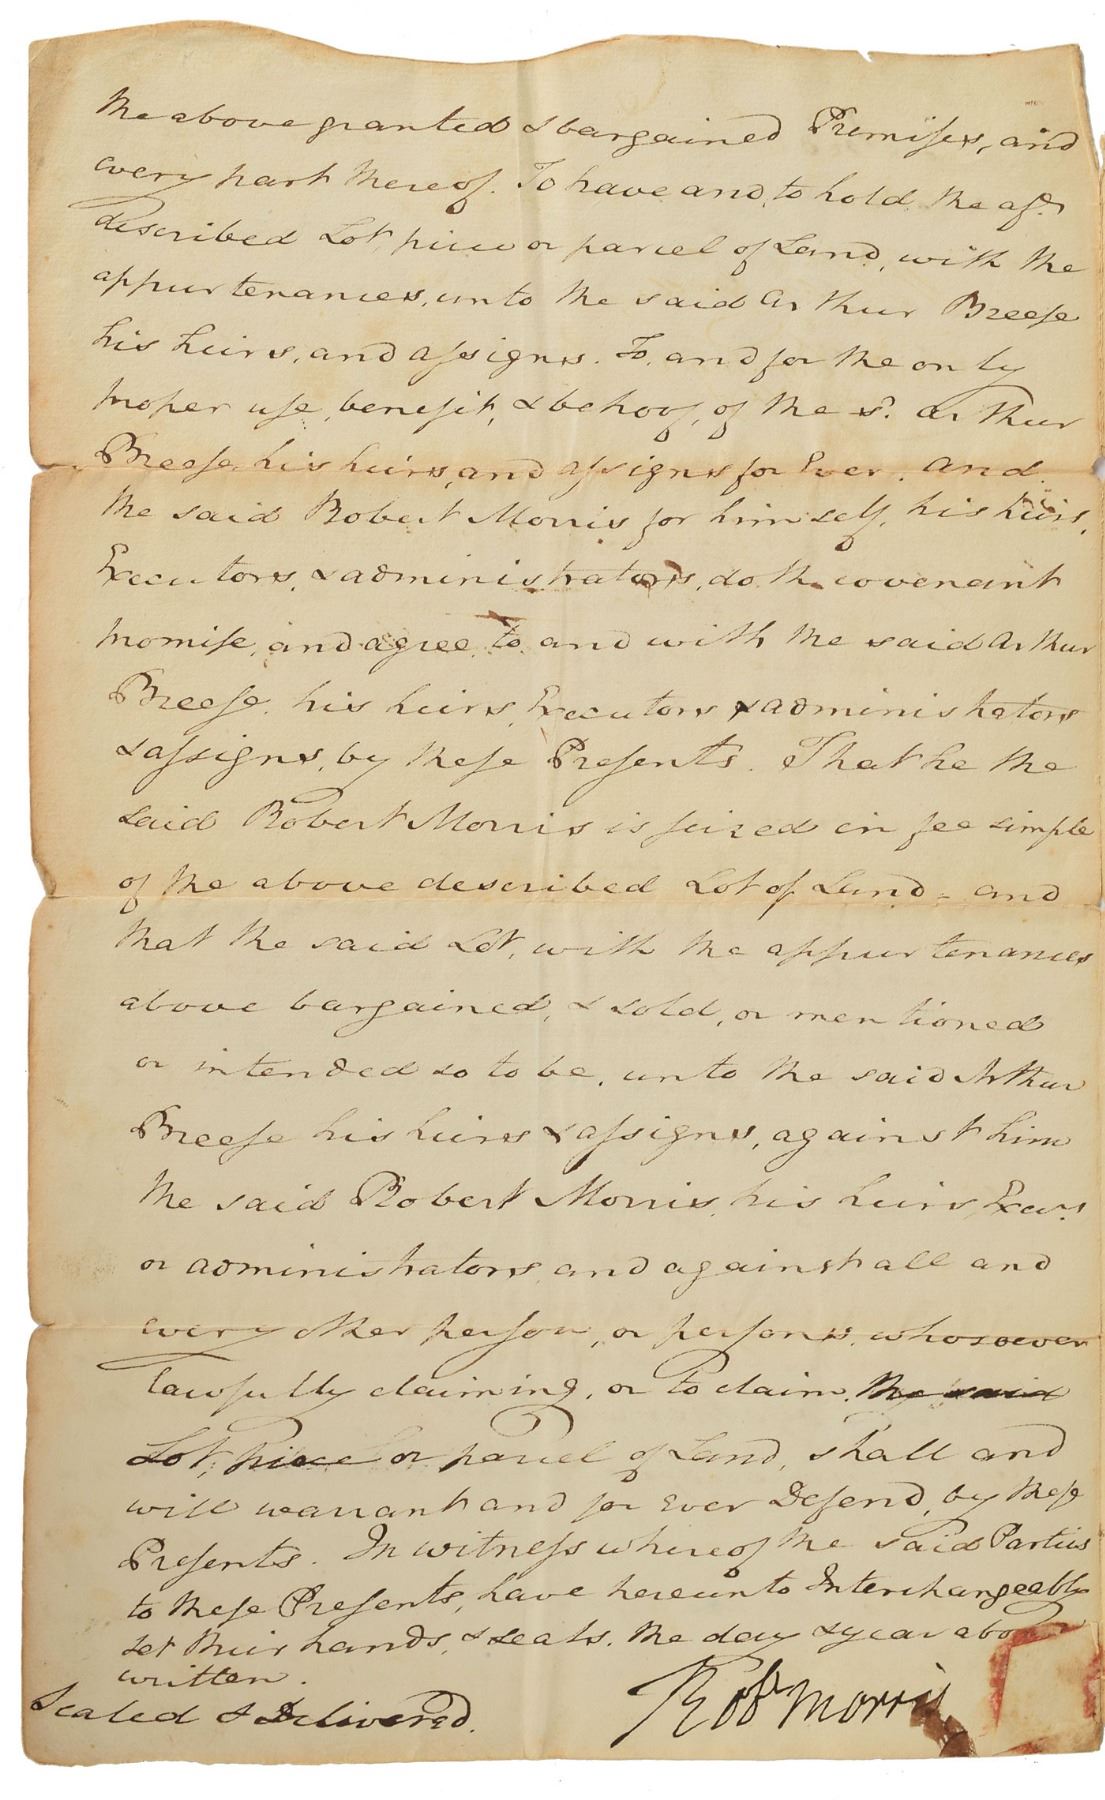 the above granted & bargained Premises, and
every part thereof. To have and, to hold the afd
described Lot piece or parcel of Land, with the
appurtenances, unto the said Arthur Breese
his heirs, and assigns. To, and for the only
proper use, benefit, & behoof, of the sd. Arthur
Breese, his heirs, and assigns for Ever. And
the said Robert Morris for himself, his heirs,
Executors, & administrators, doth covenant
promise, and agree, to and with the said Arthur
Breese, his heirs, Executors & administrators
& assigns, by these Presents. That he the
said Robert Morris is seized in fee simple
of the above described Lot of Land - and
that the said Lot, with the appurtenances
above bargained, & sold, or mentioned
or intended so to be, unto the said Arthur
Breese his heirs & assigns, against him
the said Robert Morris, his heirs, Exrs.
or administrators, and against all and
every other person, or persons, whosoever
lawfully claiming, or to claim, the said
Lot, piece or parcel of Land, shall and
will warrant and for Ever Defend, by these
Presents. In witness whereof the said Parties
to these Presents, have hereunto Interchangeably
set their hands, & seals, the day & year above
written.
Sealed & Delivered.
Robt Morris